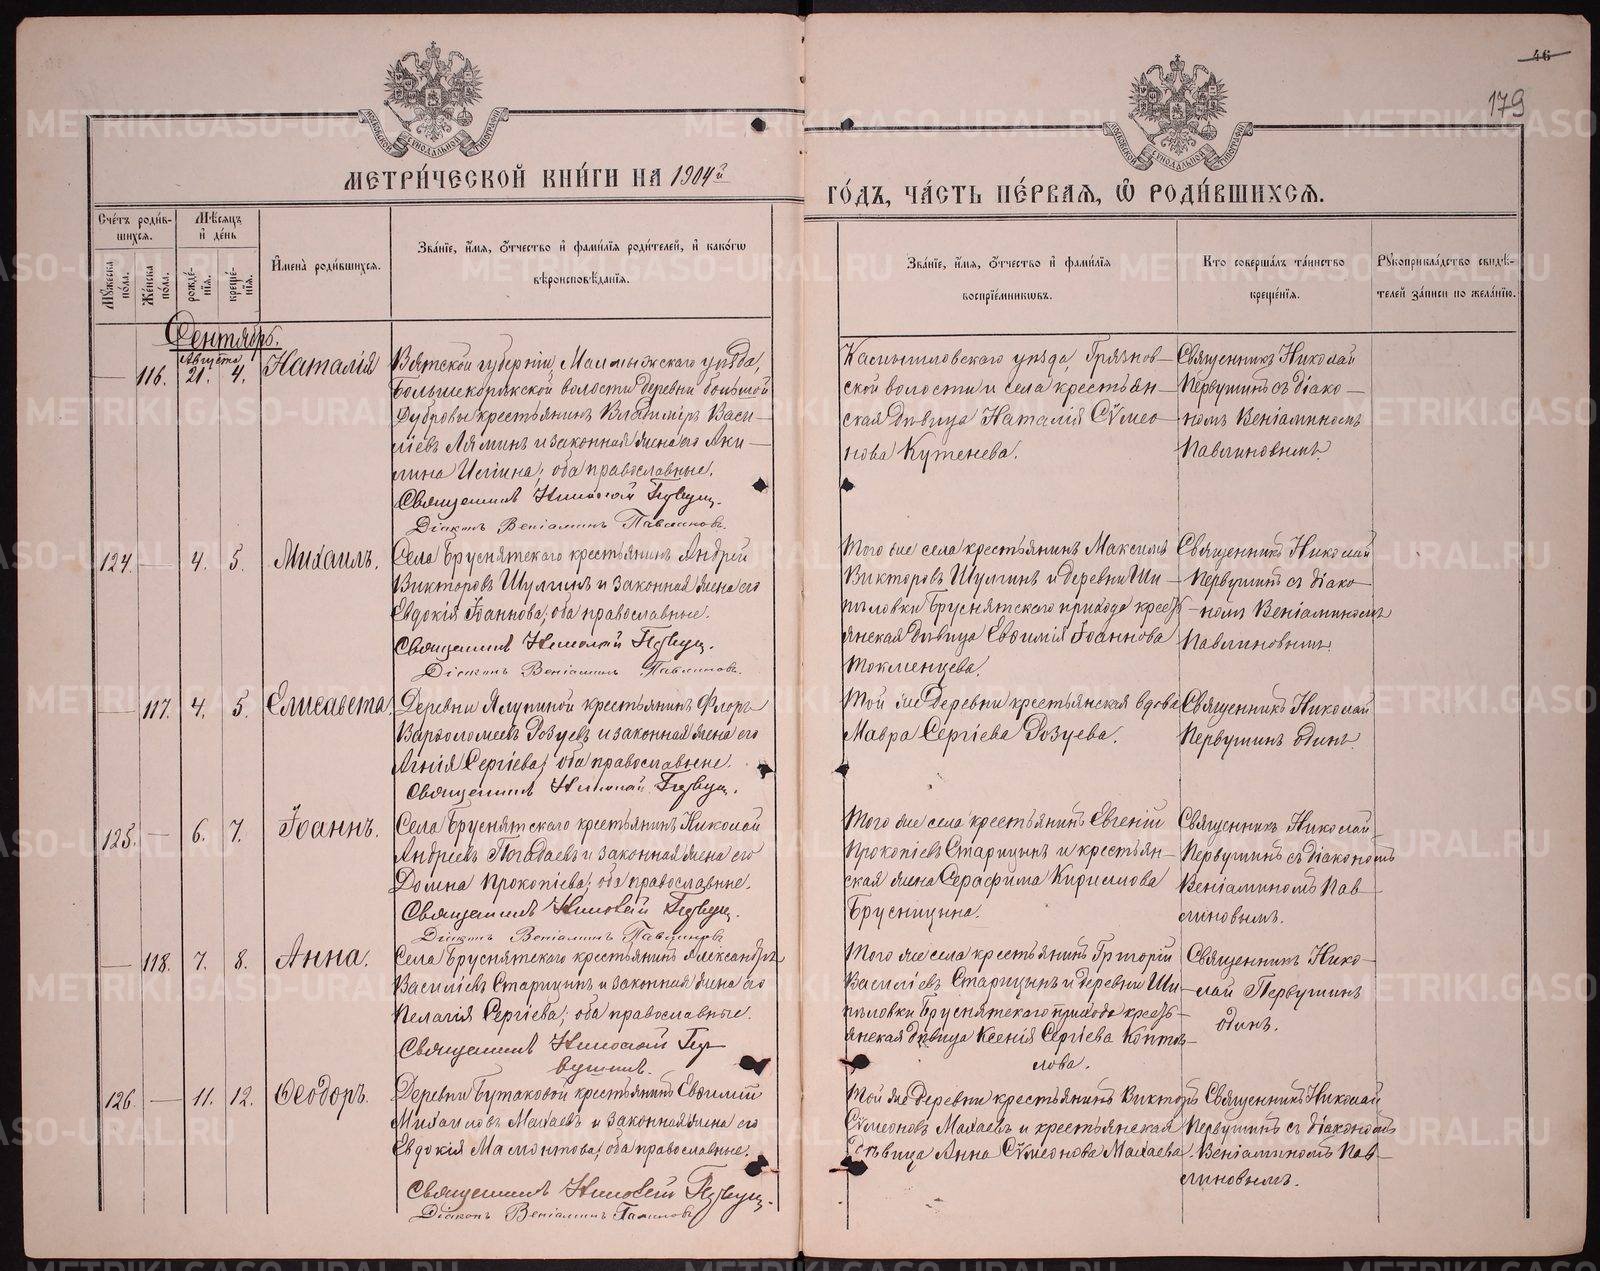 46
179
МЕТРИ́ЧЕСКОЙ КНИ́ГИ НА 1904й
ГО́ДЪ, ЧА́СТЬ ПЕ́РВАЯ, Ѽ РОДИ́ВШИХСЯ.
Сче́тъ роди́в-
шихся.
Мѣсяцъ
и҆ де́нь
Мꙋжеска по́ла.
Же́нска по́ла.
рожде́нїя.
креще́нїя.
И҆мена̀ роди́вшихся.
Зва́нїе, и҆́мя, ѻ҆́тчество и҆ фами́лїя роди́телей, и҆ како́гѡ
вѣроисповѣ́данїя.
Зва́нїе, и҆́мя, ѻ҆́тчество и҆ фами́лїя
воспрїе́мникѡвъ.
Кто соверша́лъ та́инство
креще́нїя.
Рꙋкоприкла́дство свидѣ́-
телей за́писи по жела́нїю.
Сентябрь.
Августа
116. 21. 4. Наталія
Вятской губерніи, Малмыжскаго уѣзда,
Большепорекской волости деревни большой
Дубровы крестьянинъ Владиміръ Васи-
ліевъ Ляминъ и законная жена его Аки-
лина Иліина; оба православные.
Священникъ Николай Первуш.
Діаконъ Веніаминъ Павлиновъ.
Камышловскаго уѣзда, Грязнов-
ской волости и села крестьян-
ская дѣвица Наталія Сѵмео-
нова Кутенева.
Священникъ Николай
Первушинъ съ діако-
номъ Веніаминомъ
Павлиновымъ.
124. 4. 5. Михаилъ.
Села Бруснятскаго крестьянинъ Андрей
Викторовъ Шулгинъ и законная жена его
Евдокія Іоаннова; оба православные.
Священникъ Николай Первуш.
Діаконъ Веніаминъ Павлиновъ.
Того же села крестьянинъ Максимъ
Викторовъ Шулгинъ и деревни Ши-
пиловки Бруснятскаго прихода кресть-
янская дѣвица Евѳимія Іоаннова
Токменцева.
Священникъ Николай
Первушинъ съ діако-
номъ Веніаминомъ
Павлиновымъ
117. 4. 5. Елисавета.
Деревни Ялуниной крестьянинъ Флоръ
Варѳоломеевъ Розуевъ и законная жена его
Агнія Сергіева; оба православные.
Священникъ Николай Первуш.
Той же деревни крестьянская вдова
Мавра Сергіева Розуева.
Священникъ Николай
Первушинъ одинъ.
125. 6. 7. Іоаннъ.
Села Бруснятскаго крестьянинъ Николай
Андреевъ Погадаевъ и законная жена его
Домна Прокопіева; оба православные.
Священникъ Николай Первуш.
Діаконъ Веніаминъ Павлиновъ
Того же села крестьянинъ Евгеній
Прокопіевъ Старицынъ и крестьян-
ская жена Серафима Кириллова
Брусницына.
Священникъ Николай
Первушинъ съ діакономъ
Веніаминомъ Пав-
линовымъ.
118. 7. 8. Анна.
Села Бруснятскаго крестьянинъ Александръ
Василіевъ Старицынъ и законная жена его
Пелагія Сергіева; оба православные.
Священникъ Николай Пер-
вушинъ.
Того же села крестьянинъ Григорій
Василіевъ Старицынъ и деревни Ши-
пиловки Бруснятскаго прихода кресть-
янская дѣвица Ксенія Сергіева Копты-
лова.
Священникъ Нико-
лай Первушинъ
одинъ.
126. 11. 12. Ѳеодоръ.
Деревни Бутаковой крестьянинъ Евѳимій
Михаиловъ Махаевъ и законная жена его
Евдокія Мамонтова; оба православные.
Священникъ Николай Первуш.
Діаконъ Веніаминъ Павлиновъ
Той же деревни крестьянинъ Викторъ
Сѵмеоновъ Махаевъ и крестьянская
дѣвица Анна Сѵмеонова Махаева.
Священникъ Николай
Первушинъ съ діакономъ
Веніаминомъ Пав-
линовымъ.